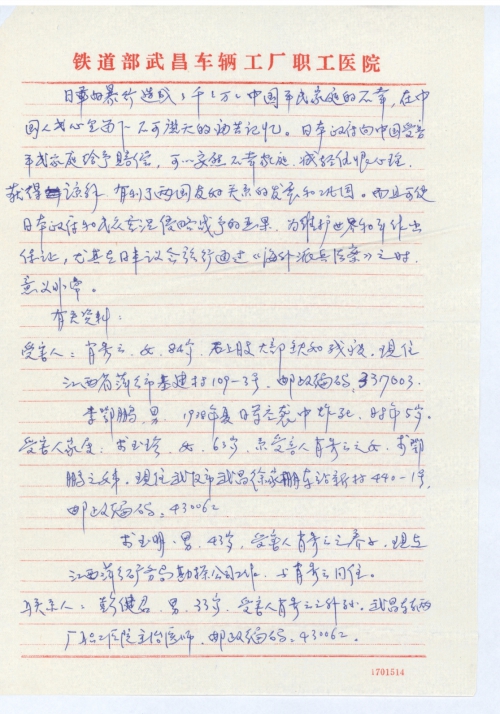 铁道部武昌车辆工厂职工医院
日军的暴行造成了千千万万中国市民家庭的不幸，在中
国人民心里留下不可磨灭的痛苦记忆。日本政府向中国受害
市民家庭给予赔偿，可以安慰不幸家庭，减轻仇恨心理，
获得谅解，有利于两国友好关系的发展和巩固。而且可使
日本政府和民众意识侵略战争的恶果，为维护世界和平作出
保证，尤其是日本议会强行通过《海外派兵法案》之时，
意义非常。
有关资料：
受害人：肖秀云，女，86岁，右上肢大部缺如残疾，现住
江西省萍乡市基建村109-3号，邮政编码，337003.
李鄂鹏，男，1938年夏日军空袭中炸死，时年5岁。
受害人家属：李玉珍，女，63岁，系受害人肖秀云之女，李鄂
鹏之姊，现住武汉市武昌徐家棚车站新村440-1号，
邮政编码，430062
李玉明，男，43岁，受害人肖秀云之养子，现在
江西萍乡矿务局勘探公司工作，与肖秀云同住。
联系人：彭健君，男，33岁，受害人肖秀云之外孙，武昌车辆
厂职工医院主治医师，邮政编码，430062.
1701514